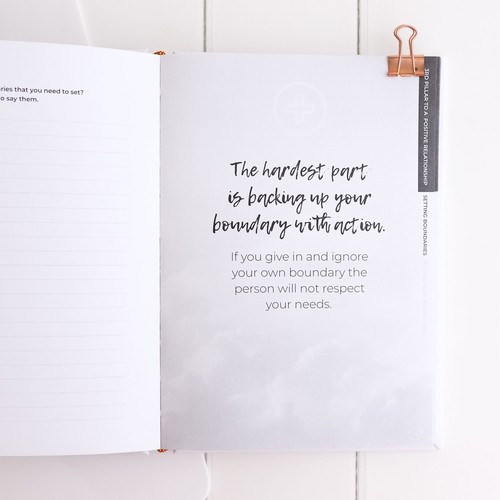 ries that you need to set?
o say them.
The hardest part
is backing up your
boundary with action.
If you give in and ignore
your own boundary the
person will not respect
your needs.
3RD PILLAR TO A POSITIVE RELATIONSHIP
SETTING BOUNDARIES